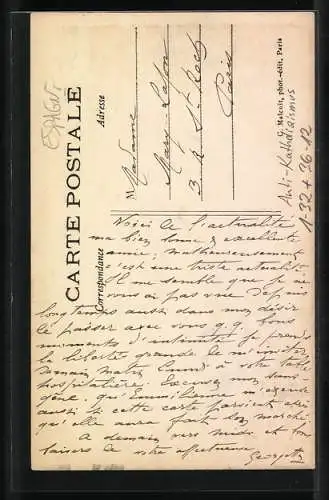 CARTE POSTALE
Correspondance
Adresse
M Madame
Mary-Lafon
3 R St Roch
Paris
G. Malcuit, phot.-édit. Paris
ESPAGNE
Anti-Katholizismus
1-32 + 36-12
Voici de l'actualité
ma bien bonne & excellente
amie; malheureusement
c'est une triste actualité.
Il me semble que je ne
vous ai pas vue depuis
longtemps aussi dans mon désir
de passer avec vous q.q. bons
moments d'intimité je prends
la liberté grande de m'inviter
demain matin lundi à votre table
hospitalière. Excusez mon sans-
gêne, qu'Emmilienne m'excuse
aussi si cette carte parvient et
qu'elle aura fait son marché
A demain vers midi et bons
baisers de votre affectueuse
Georgette